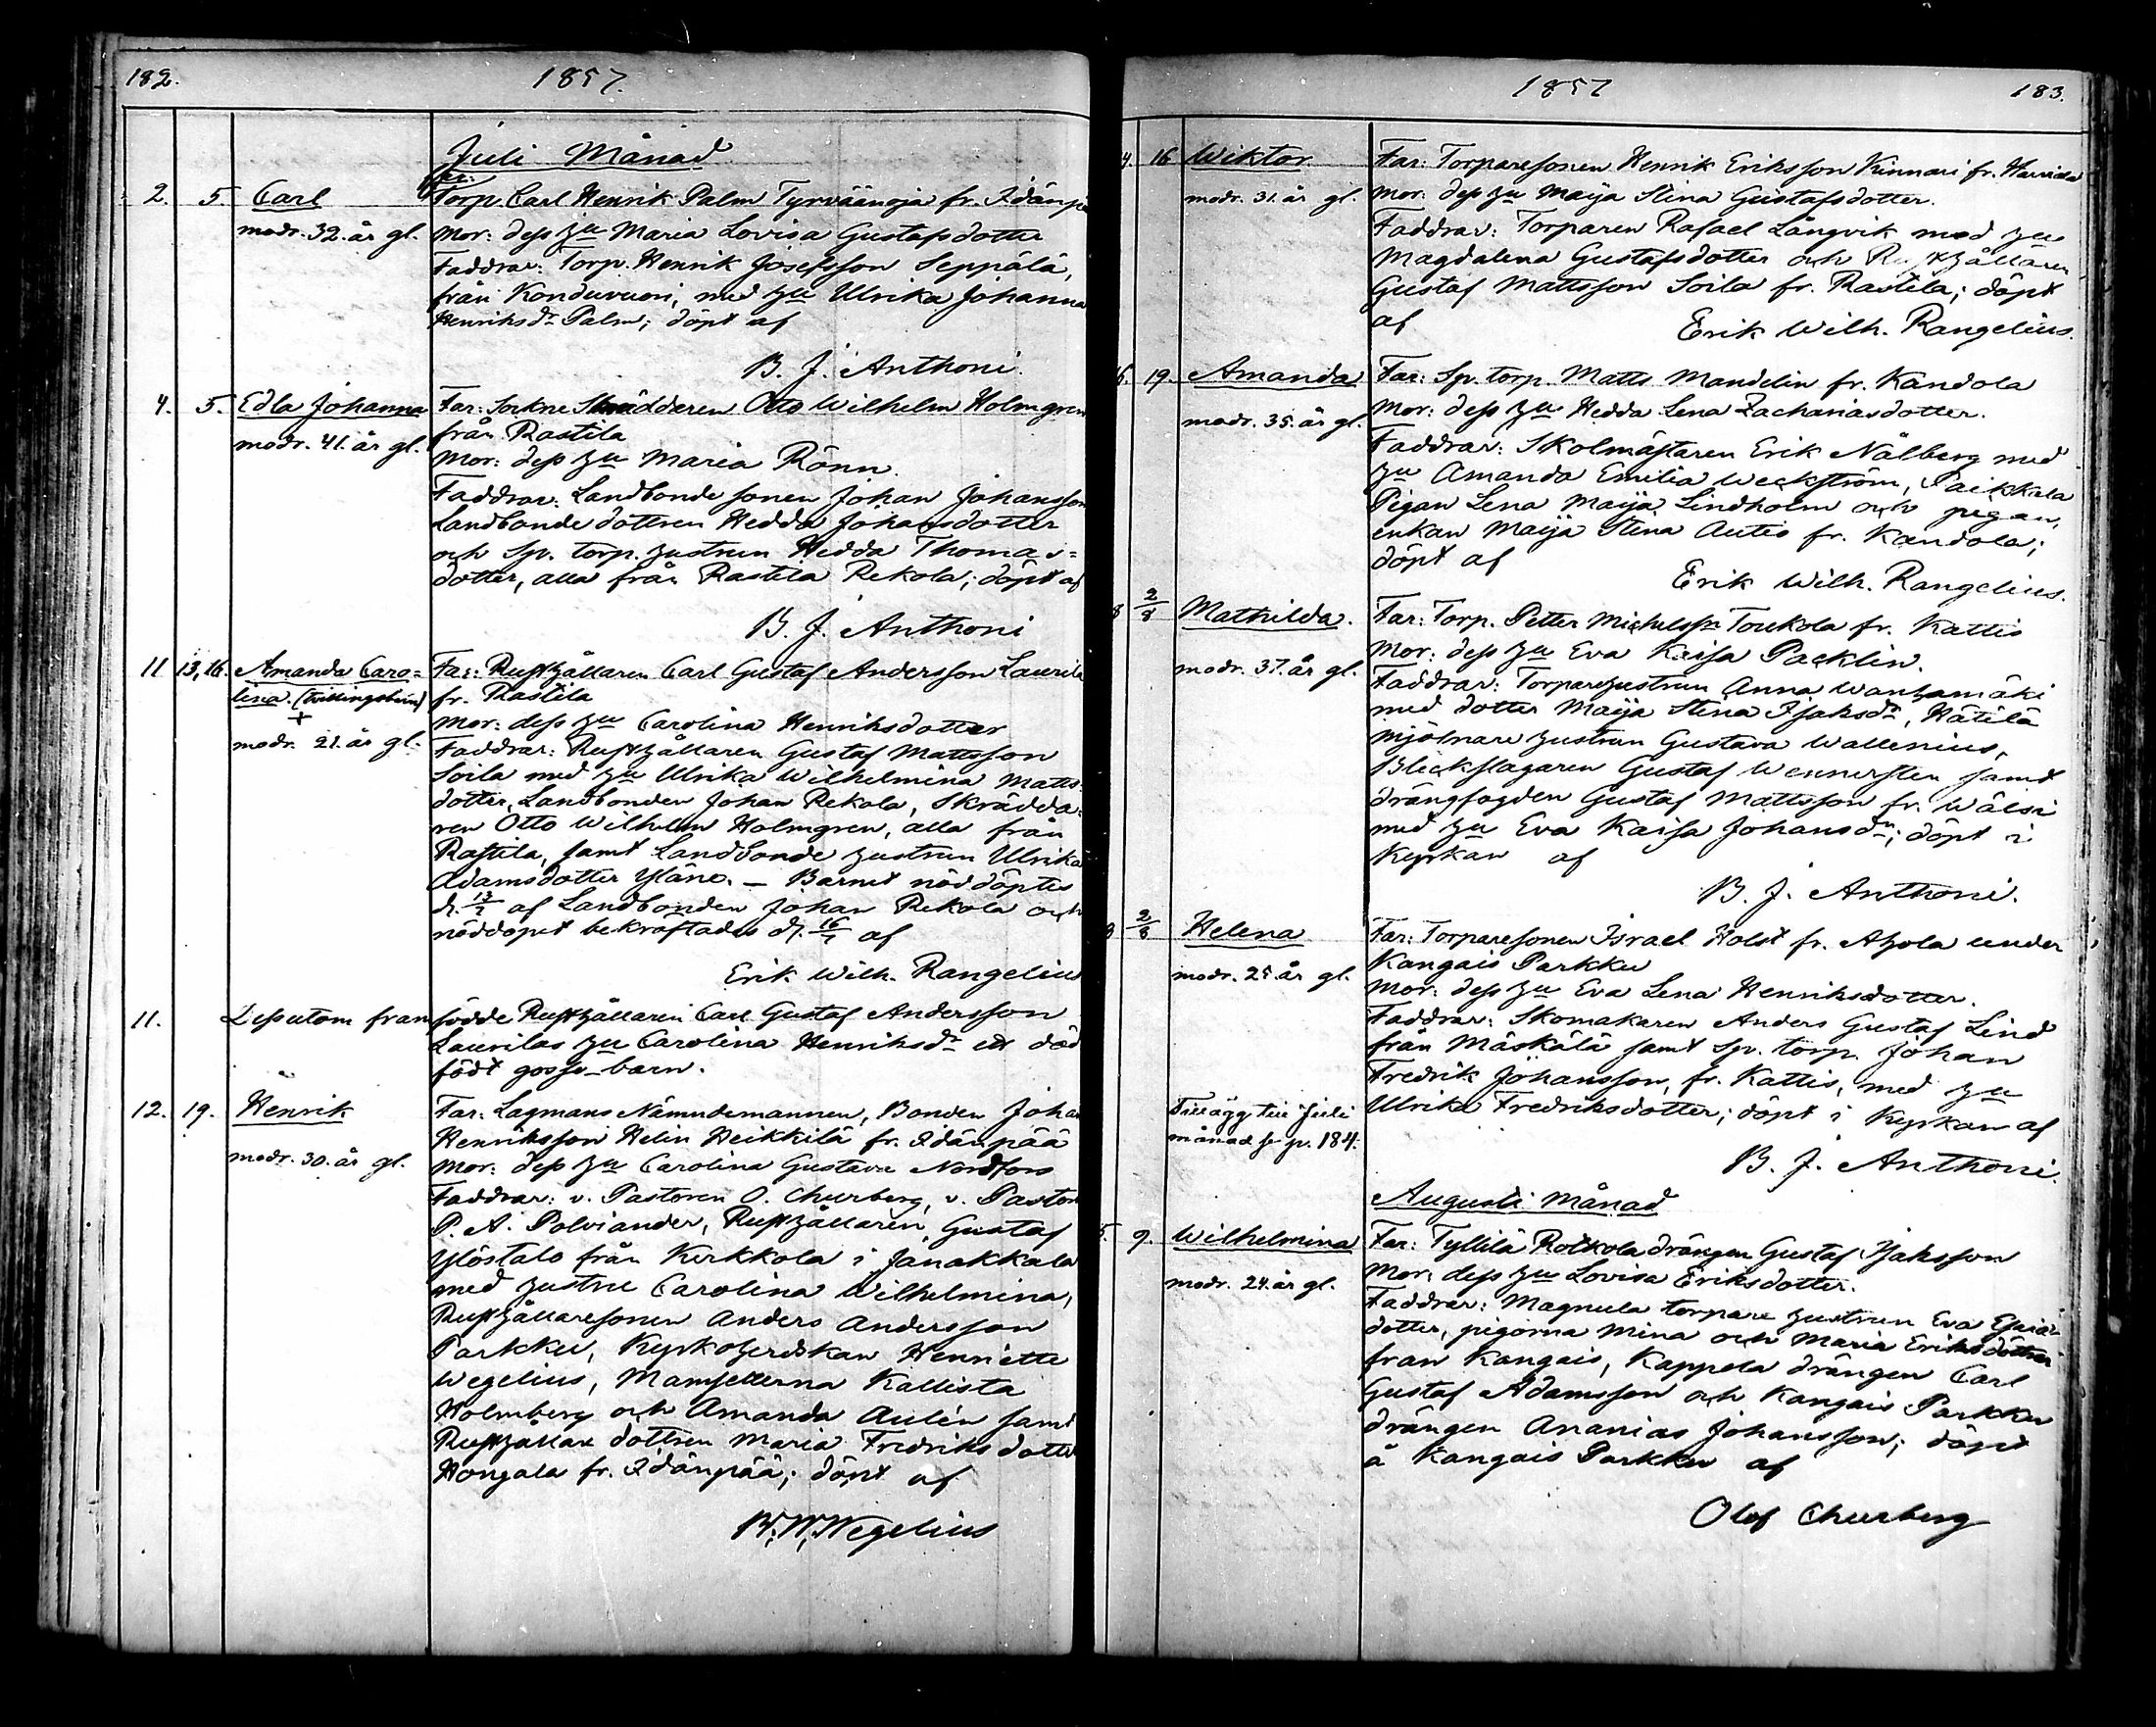 182. 1857.
Juli Månad
Far:
2. 5. Carl Torp. Carl Henrik Palm Tyrväänoja fr. Idänpä
modr. 32. år gl. Mor: dess hu Maria Lovisa Gustafsdotter
Faddrar: Torp. Henrik Josefsson Seppälä,
från Konduvuori, med hu Ulrika Johanna
Henriksdr Palm; döpt af
B. J. Anthoni.
4. 5. Edla Johanna Far: Sockne Skräddaren Otto Wilhelm Holmgren
modr. 41. år gl. från Rastila
Mor: dess hu Maria Rönn.
Faddrar: Landbonde sonen Johan Johansson
Landbonde dottren Hedda Johansdotter
och Sp. torp. hustrun Hedda Thomas=
dotter, alla från Rastila Rekola; döpt af
B. J. Anthoni
11 13,16. Amanda Caro= Far: Rusthållaren Carl Gustaf Andersson Laurila
lina. (tvillingsbarn) fr. Rastila
+
modr. 21. år gl. Mor: dess hu Carolina Henriksdotter
Faddrar: Rusthållaren Gustaf Mattsson
Soila med hu Ulrika Wilhelmina Matts=
dotter, Landbonden Johan Rekola, Skrädda=
ren Otto Wilhelm Holmgren, alla från
Rastila, samt Landbonde hustrun Ulrika
Adamsdotter Yläne. — Barnet nöddöptes
d. 13/7 af Landbonden Johan Rekola och
nöddopet bekräftades d. 16/7 af
Erik Wilh. Rangelius
11. Dessutom framfödde Rusthållaren Carl Gustaf Andersson
Laurilas hu Carolina Henriksdr ett död
födt gosse-barn.
12. 19. Henrik Far: Lagmans Nämndemannen, Bonden Johan
Henriksson Helin Heikkilä fr. Idänpää
modr. 30. år gl. Mor: dess hu Carolina Gustava Nordfors
Faddrar: v. Pastoren O. Churberg, v. Pastor
P. A. Polviander, Rusthållaren Gustaf
Ylöstalo från Kerkkola i Janakkala
med hustru Carolina Wilhelmina,
Rusthållaresonen Anders Andersson
Parkku, Kyrkoherdskan Henriette
Wegelius, Mamsellerna Kallista
Holmberg och Amanda Aulén samt
Rusthållare dottren Maria Fredriksdotter
Hongala fr. Idänpää; döpt af
W. Wegelius
1857 183.
4. 16 Wiktor Far: Torparesonen Henrik Eriksson Kinnari fr. Harviala
modr. 31. år gl. Mor: dess hu Maija Stina Gustafsdotter.
Faddrar: Torparen Rafael Långvik med hu
Magdalena Gustafsdotter och Rusthållaren
Gustaf Mattsson Soila fr. Rastila; döpt
af Erik Wilh. Rangelius.
19. Amanda Far: Sp. torp. Matts Mandelin fr. Kandola
modr. 35. år gl. Mor: dess hu Hedda Lena Zachariasdotter.
Faddrar: Skolmästaren Erik Nålberg med
hu Amanda Emilia Weckström, Paikkala
Pigan Lena Maija Lindholm och pigan,
enkan Maija Stina Autio fr. Kandola;
döpt af
Erik Wilh. Rangelius.
8 2/8 Mathilda. Far: Torp. Petter Michelsson Toukola fr. Kattis
modr. 37. år gl. Mor: dess hu Eva Kaisa Packlin.
Faddrar: Torparehustrun Anna Wanhamäki
med dotter Maija Stina Isaksdr, Hätilä
mjölnare hustrun Gustava Wallenius,
Bleckslagaren Gustaf Wennersten samt
drängfogden Gustaf Mattsson fr. Wälsi
med hu Eva Kaisa Johansdr; döpt i
Kyrkan af
B. J. Anthoni.
8 2/8 Helena Far: Torparesonen Israel Holst fr. Ahola under
Kangais Parkku
modr. 25. år gl. Mor: dess hu Eva Lena Henriksdotter.
Faddrar: Skomakaren Anders Gustaf Lind
från Mäskälä samt Sp. torp. Johan
Fredrik Johansson, fr. Kattis, med hu
Tillägg till Juli Ulrika Fredriksdotter; döpt i Kyrkan af
månad se p. 184.
B. J. Anthoni.
Augusti Månad
5. 9. Wilhelmina Far: Tyllilä Rotkola drängen Gustaf Isaksson
modr. 24. år gl. Mor: dess hu Lovisa Eriksdotter.
Faddrar: Magnula torpare hustrun Eva Esaias
dotter, pigorna Mina och Maria Eriksdöttrar
från Kangais, Kappola drängen Carl
Gustaf Adamsson och Kangais Parkku
drängen Ananias Johansson; döpt
å Kangais Parkku af
Olof Churberg